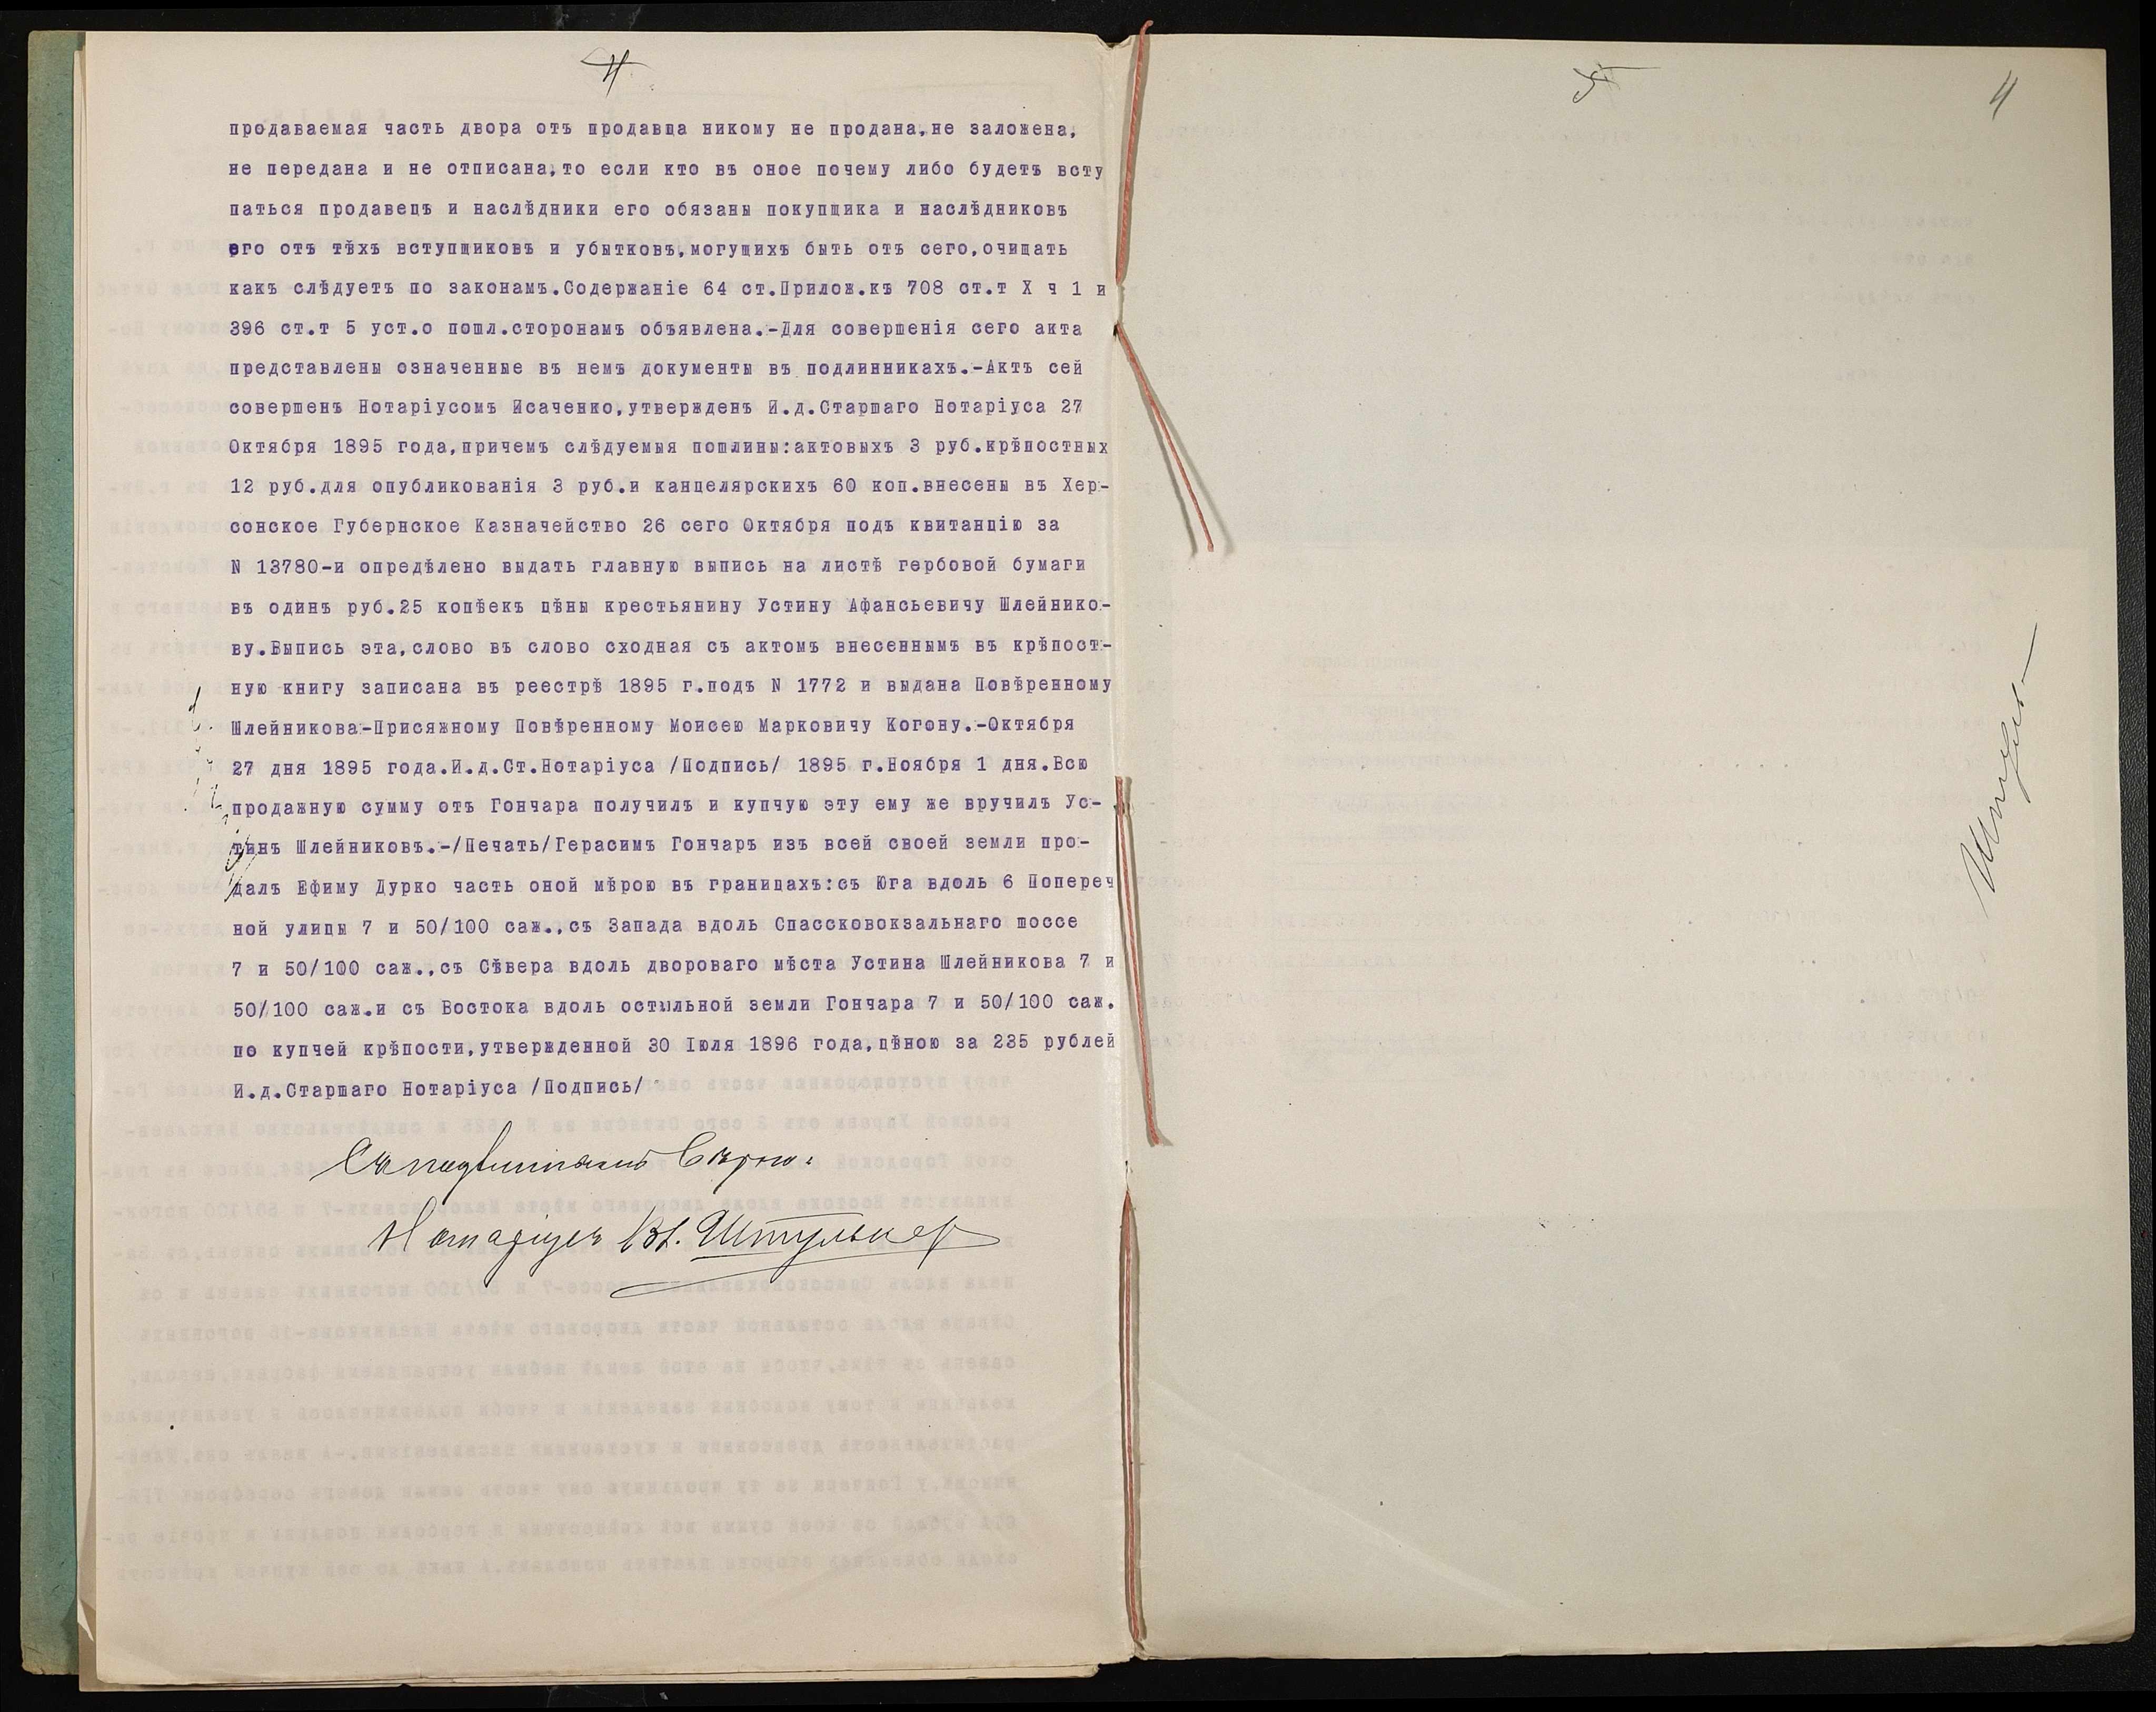 4
продаваемая часть двора отъ продавца никому не продана,не заложена,
не передана и не отписана,то если кто въ оное почему либо будетъ всту
паться продавецъ и наслѣдники его обязаны покупщика и наслѣдниковъ
его отъ тѣхъ вступщиковъ и убытковъ,могущихъ быть отъ сего,очищать
какъ слѣдуетъ по законамъ.Содержаніе 64 ст.Прилож.къ 708 ст.т X ч 1 и
396 ст.т 5 уст.о пошл.сторонамъ объявлена.-Для совершенія сего акта
представлены означенные въ немъ документы въ подлинникахъ.-Актъ сей
совершенъ Нотаріусомъ Исаченко,утвержденъ И.д.Старшаго Нотаріуса 27
Октября 1895 года,причемъ слѣдуемыя пошлины:актовыхъ 3 руб.крѣпостных
12 руб.для опубликованія 3 руб.и канцелярскихъ 60 коп.внесены въ Хер-
сонское Губернское Казначейство 26 сего Октября подъ квитанцію за
N 13780-и опредѣлено выдать главную выпись на листѣ гербовой бумаги
въ одинъ руб.25 копѣекъ цѣны крестьянину Устину Афансьевичу Шлейнико-
ву.Выпись эта,слово въ слово сходная съ актомъ внесеннымъ въ крѣпост-
ную книгу записана въ реестрѣ 1895 г.подъ N 1772 и выдана Повѣренному
Шлейникова-Присяжному Повѣренному Моисею Марковичу Когону.-Октября
27 дня 1895 года.И.д.Ст.Нотаріуса /Подпись/ 1895 г.Ноября 1 дня.Всю
продажную сумму отъ Гончара получилъ и купчую эту ему же вручилъ Ус-
тинъ Шлейниковъ.-/Печать/Герасимъ Гончаръ изъ всей своей земли про-
далъ Ефиму Дурко часть оной мѣрою въ границахъ:съ Юга вдоль 6 Попереч
ной улицы 7 и 50/100 саж.,съ Запада вдоль Спассковокзальнаго шоссе
7 и 50/100 саж.,съ Сѣвера вдоль двороваго мѣста Устина Шлейникова 7 и
50/100 саж.и съ Востока вдоль остыльной земли Гончара 7 и 50/100 саж.
по купчей крѣпости,утвержденной 30 Іюля 1896 года,цѣною за 235 рублей
И.д.Старшаго Нотаріуса /Подпись/
Съ подлиннымъ вѣрно:
Нотаріусъ Вл. Штульнер
5
4